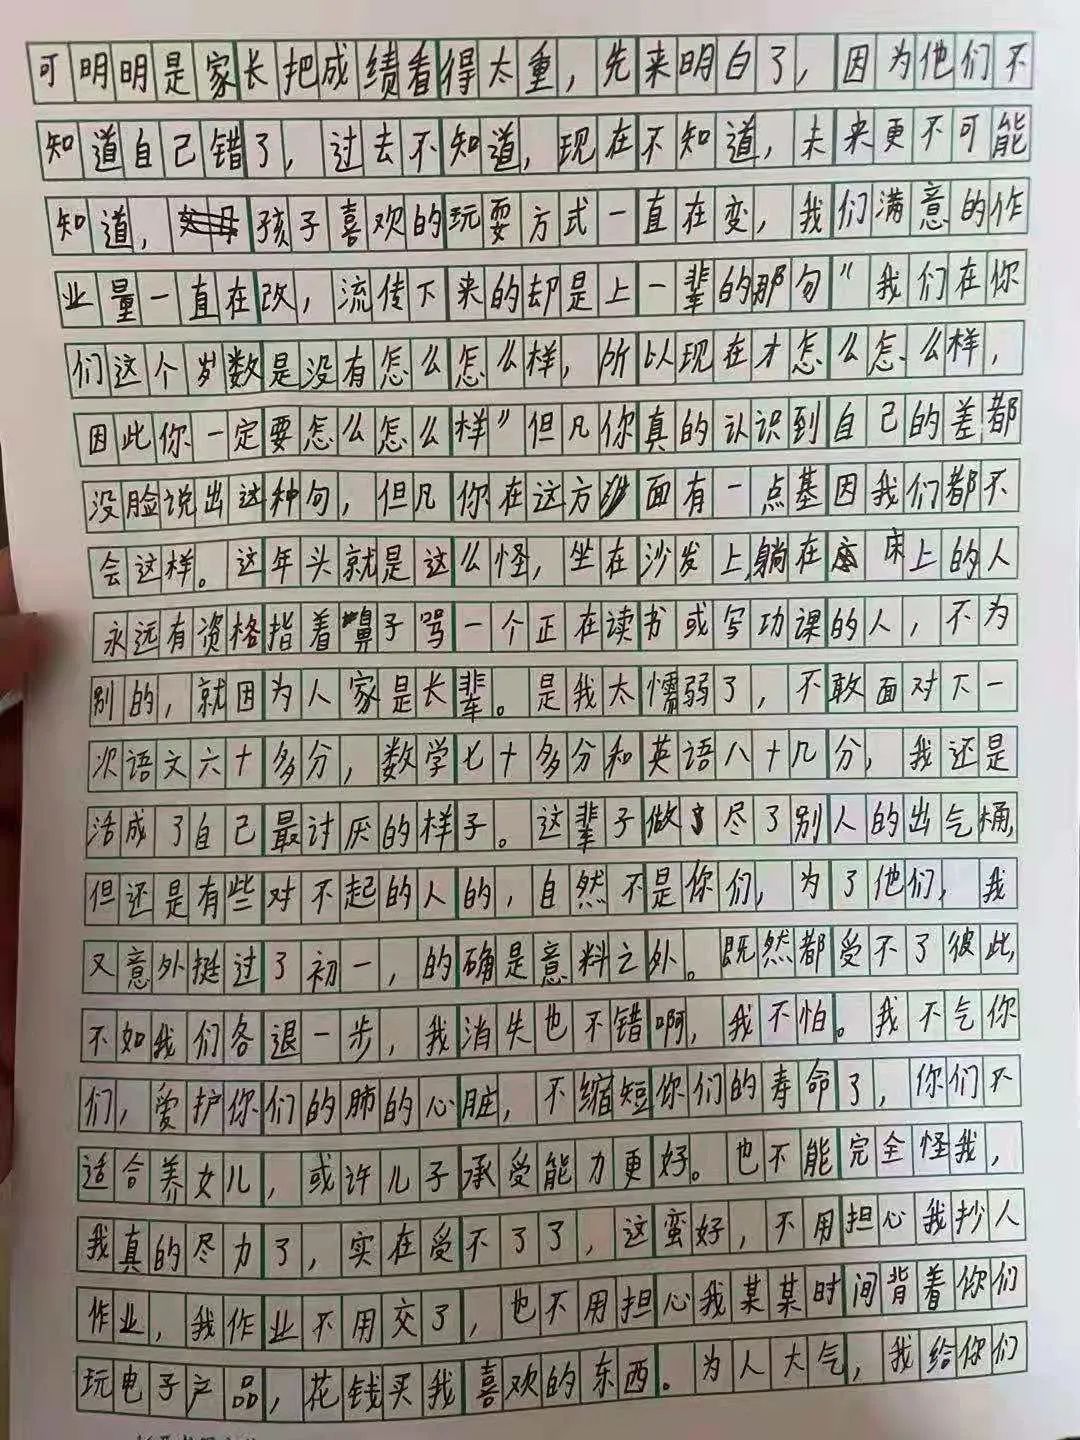 可明明是家长把成绩看得太重，先来明白了，因为他们不
知道自己错了，过去不知道，现在不知道，未来更不可能
知道，孩子喜欢的玩耍方式一直在变，我们满意的作
业量一直在改，流传下来的却是上一辈的那句“我们在你
们这个岁数是没有怎么怎么样，所以现在才怎么怎么样，
因此你一定要怎么怎么样”但凡你真的认识到自己的差都
没脸说出这种句，但凡你在这方面有一点基因我们都不
会这样。这年头就是这么怪，坐在沙发上，躺在床上的人
永远有资格指着鼻子骂一个正在读书或写功课的人，不为
别的，就因为人家是长辈。是我太懦弱了，不敢面对下一
次语文六十多分，数学七十多分和英语八十几分，我还是
活成了自己最讨厌的样子。这辈子做尽了别人的出气桶，
但还是有些对不起的人的，自然不是你们，为了他们，我
又意外挺过了初一，的确是意料之外。既然都受不了彼此，
不如我们各退一步，我消失也不错啊，我不怕。我不气你
们，爱护你们的肺的心脏，不缩短你们的寿命了，你们不
适合养女儿，或许儿子承受能力更好。也不能完全怪我，
我真的尽力了，实在受不了了，这蛮好，不用担心我抄人
作业，我作业不用交了，也不用担心我某某时间背着你们
玩电子产品，花钱买我喜欢的东西。为人大气，我给你们